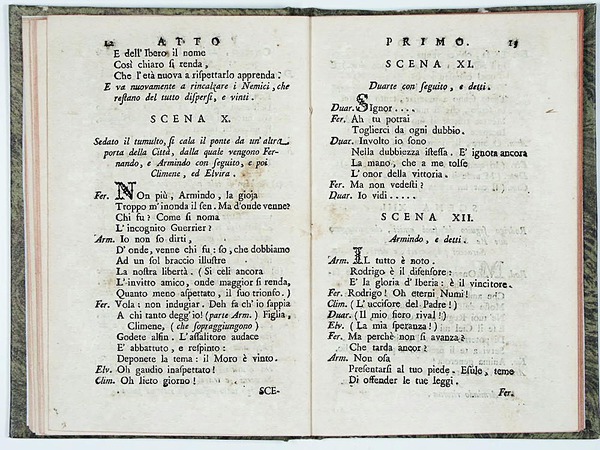 12 ATTO
E dell'Ibero il nome
Così chiaro si renda,
Che l'età nuova a rispettarlo apprenda.
E va nuovamente a rincalzare i Nemici, che
restano del tutto dispersi, e vinti.
SCENA X.
Sedato il tumulto, si cala il ponte da un'altra
porta della Città, dalla quale vengono Fer-
nando, e Armindo con seguito, e poi
Climene, ed Elvira.
Fer. NOn più, Armindo, la gioja
Troppo m'inonda il sen. Ma d'onde venne?
Chi fu? Come si noma
L'incognito Guerrier?
Arm. Io non so dirti,
D'onde, venne chi fu: so, che dobbiamo
Ad un sol braccio illustre
La nostra libertà. (Sì celi ancora
L'invitto amico, onde maggior si renda,
Quanto meno aspettato, il suo trionfo.)
Fer. Vola: non indugiar. Deh fa ch'io sappia
A chi tanto degg'io! (parte Arm.) Figlia,
Climene, (che sopraggiungono)
Godete alfin. L'assalitore audace
E' abbattuto, e respinto:
Deponete la tema: il Moro è vinto.
Elv. Oh gaudio inaspettato!
Clim. Oh lieto giorno!
SCE-
PRIMO. 13
SCENA XI.
Duarte con seguito, e detti.
Duar. SIgnor....
Fer. Ah tu potrai
Toglierci da ogni dubbio.
Duar. Involto io sono
Nella dubbiezza istessa. E' ignota ancora
La mano, che a me tolse
L'onor della vittoria.
Fer. Ma non vedesti?
Duar. Io vidi.....
SCENA XII.
Armindo, e detti.
Arm. IL tutto è noto.
Rodrigo è il difensore:
E' la gloria d'Iberia: è il vincitore.
Fer. Rodrigo! Oh eterni Numi!
Clim. (L'uccisore del Padre!)
Duar. (Il mio fiero rival!)
Elv. (La mia speranza!)
Fer. Ma perchè non si avanza?
Che tarda ancor?
Arm. Non osa
Presentarsi al tuo piede. Esule, teme
Di offender le tue leggi.
Fer.